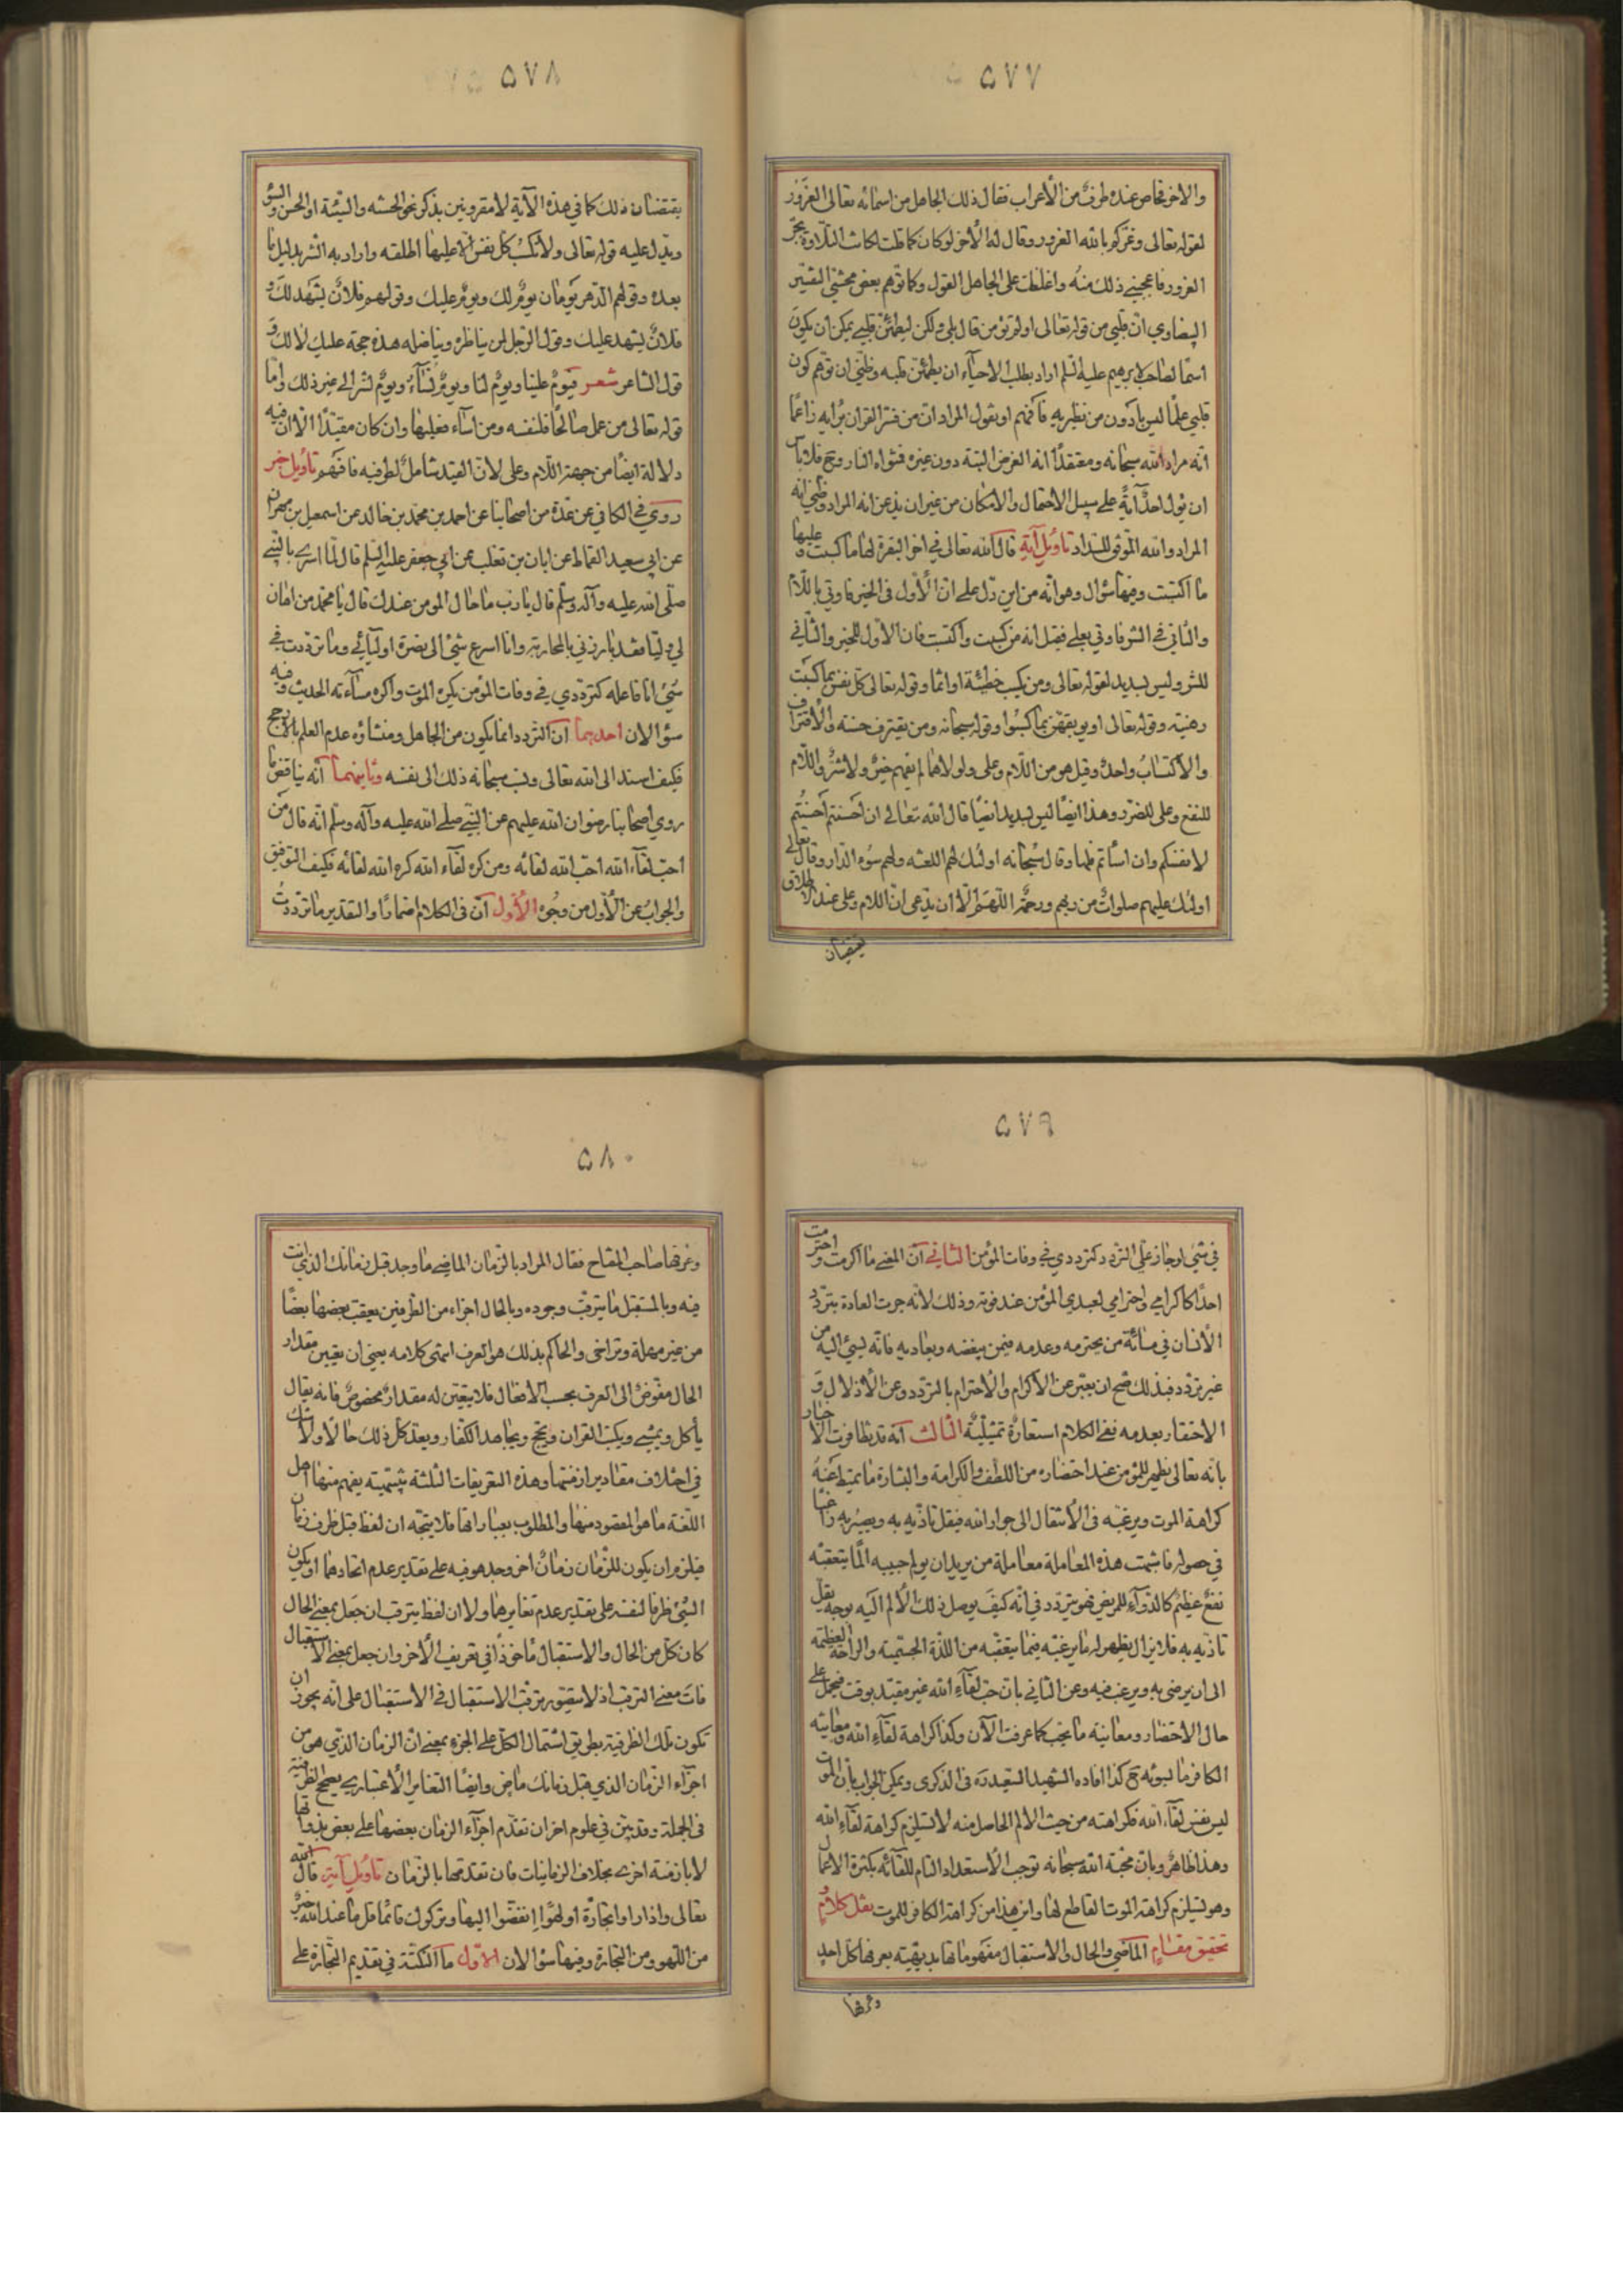 ٥٧٧
والاخر تحاص عنده طرف من الأعراب فقال ذلك الجاهل من اسمائه تعالى الغرور
لقوله تعالى وغركم بالله الغرور وقال له الأخر لوكان كما قلت لكانت التلاوة بجر
الغرور فاعجبني ذلك منه واغلظت على الجاهل القول وكما توهم بعض محشي التفسير
البيضاوي ان قلبي من قوله تعالى اولم تؤمن قال بلى ولكن ليطمئن قلبي يمكن ان يكون
اسما لصاحب لابرهيم عليه السلم اراد بطلب الاحياء ان يطمئن قلبه وظني ان توهم كون
قلبي علما ليس بادون من نظيريه فافهم او يقول المراد ان من فسر القران برايه زاعما
انه مراد الله سبحانه ومعتقدا انه الغرض البتة دون غيره فثواه النار وح فلا باس
ان يؤل احد آية على سبيل الاحتمال والامكان من غير ان يذعن انه المراد وظني انه
المراد والله الموفق للسداد تاويل آية قال الله تعالى في اخر البقرة لها ما كسبت وعليها
ما اكتسبت وفيها سؤال وهو انه من اين دل على ان الأول في الخير فاوتي باللام
والثاني في الشر فاوتي بعلى فقيل انه من كسبت واكتسبت فان الأول للخير والثاني
للشر وليس بسديد لقوله تعالى ومن يكسب خطيئة او اثما وقوله تعالى كل نفس بما كسبت
رهينة وقوله تعالى او يوبقهن بما كسبوا وقوله سبحانه ومن يقترف حسنة والأقتراف
والاكتساب واحد وقيل هو من اللام وعلى ولولاهما لم يفهم خير ولا شر واللام
للنفع وعلى للضرر وهذا ايضا ليس بسديد ايضا قال الله تعالى ان احسنتم احسنتم
لانفسكم وان اسأتم فلها وقال سبحانه اولئك لهم اللعنة ولهم سوء الدار وقال تعالى
اولئك عليهم صلوات من ربهم ورحمة اللهم الا ان يدعى ان اللام وعلى عند الاطلاق
يقتضيان
٥٧٨
يقتضيان ذلك كما في هذه الآية لا مقرونين بذكر نحو الحسنة والسيئة او الحسن والسوء
ويدل عليه قوله تعالى ولا تكسب كل نفس الا عليها اطلقه واراد به الشر بدليل ما
بعده وقولهم الدهر يومان يوم لك ويوم عليك وقولهم فلان يشهد لك و
فلان يشهد عليك وقول الرجل لمن يناظره ويناضله هذه حجة عليك لا لك و
قول الشاعر شعر فيوم علينا ويوم لنا ويوم نساء ويوم نسر الى غير ذلك واما
قوله تعالى من عمل صالحا فلنفسه ومن اساء فعليها وان كان مقيدا الا ان فيه
دلالة ايضا من جهة اللام وعلى لان القيد شامل لطرفيه فافهم تاويل خبر
روي في الكافي عن عدة من اصحابنا عن احمد بن محمد بن خالد عن اسمعيل بن مهران
عن ابي سعيد القماط عن ابان بن تغلب عن ابي جعفر عليه السلم قال لما اسري بالنبي
صلى الله عليه وآله وسلم قال يا رب ما حال المومن عندك قال يا محمد من اهان
لي وليا فقد بارزني بالمحاربة وانا اسرع شيئ الى نصرة اوليائي وما ترددت في
شيئ انا فاعله كترددي في وفات المؤمن يكره الموت واكره مساءته الحديث وفيه
سؤالان احديهما ان التردد انما يكون من الجاهل ومنشاؤه عدم العلم بالارجح
فكيف اسند الى الله تعالى ونسب سبحانه ذلك الى نفسه وثانيهما انه يناقض ما
روي اصحابنا رضوان الله عليهم عن النبي صلى الله عليه وآله وسلم انه قال من
احب لقاء الله احب الله لقائه ومن كره لقاء الله كره الله لقائه فكيف التوفيق
والجواب عن الأول من وجوه الأول ان في الكلام اضمارا والتقدير ما ترددت
٥٧٩
في شيئ لو جاز علي التردد كترددي في وفات المؤمن الثاني ان المعنى ما اكرمت واحترمت
احدا كاكرامي واحترامي لعبدي المؤمن عند فوته وذلك لأنه جرت العادة بتردد
الأنسان في مسائة من يحترمه وعدمه فيمن يبغضه ويعاديه فانه يسيئ اليه من
غير تردد فبذلك صح ان يعبر عن الأكرام والأحترام بالتردد وعن الأذلال و
الاحتقار بعدمه ففي الكلام استعارة تمثيلية الثالث انه قد تظافرت الاخبار
بانه تعالى يظهر للمؤمن عند احتضاره من اللطف والكرامة والبشارة ما يميط عنه
كراهة الموت ويرغبه في الأنتقال الى جوار الله فيقل تاذيه به ويصيره راغبا
في حصوله فاشبهت هذه المعاملة معاملة من يريد ان يولم حبيبه الما يتعقبه
نفع عظيم كالدواء للمريض فهو يتردد في انه كيف يوصل ذلك الألم اليه بوجه يقل
تاذيه به فلا يزال يظهر له ما يرغبه فيما يتعقبه من اللذة الجسمية والراحة العظيمة
الى ان يرضى به ويرغب فيه وعن الثاني بان حب لقاء الله غير مقيد بوقت فيحمل على
حال الاحتضار ومعاينة ما يحب كما عرفت الآن وكذا كراهة لقاء الله ومعاينة
الكافر ما يسوئه ح كذا افاده الشهيد السعيد ره في الذكرى ويمكن الجواب بان الموت
ليس نفس لقاء الله فكراهته من حيث الالم الحاصل منه لا تستلزم كراهة لقاء الله
وهذا ظاهر وبان محبة الله سبحانه توجب الاستعداد التام للقائه بكثرة الاعمال
وهو يستلزم كراهة الموت القاطع لها واين هذا من كراهة الكافر للموت نقل كلام و
تحقيق مقام الماضي والحال والاستقبال مفهوماتها بديهية يعرفها كل احد
وعرفها
٥٨٠
وعرفها صاحب المفتاح فقال المراد بالزمان الماضي ما وجد قبل زمانك الذي انت
فيه وبالمستقبل ما يترقب وجوده وبالحال اجزاء من الطرفين يعقب بعضها بعضا
من غير مهلة وتراخى والحاكم بذلك هو العرف انتهى كلامه يعني ان تعيين مقدار
الحال مفوض الى العرف بحسب الافعال فلا يتعين له مقدار مخصوص فانه يقال
يأكل ويمشي ويكتب القران ويحج ويجاهد الكفار ويعد كل ذلك حالا ولا شك
في اختلاف مقادير ازمنتها وهذه التعريفات الثلثة تنبيهية يفهم منها اهل
اللغة ما هو المقصود منها والمطلوب بعباراتها فلا يتجه ان لفظ قبل ظرف زمان
فيلزم ان يكون للزمان زمان اخر وجد هو فيه على تقدير عدم اتحادهما او يكون
الشيئ ظرفا لنفسه على تقدير عدم تغايرهما ولا ان لفظ يترقب ان جعل بمعنى الحال
كان كل من الحال والاستقبال مأخوذا في تعريف الأخر وان جعل بمعنى الاستقبال
فات معنى الترقب اذ لا يتصور ترقب الاستقبال في الاستقبال على انه يجوز ان
تكون تلك الظرفية بطريق اشتمال الكل على الجزء بمعنى ان الزمان الذي هو من
اجزاء الزمان الذي قبل زمانك ماض وايضا التغاير الأعتباري يصحح الظرفية
في الجملة وقد بين في علوم اخر ان تقدم اجزاء الزمان بعضها على بعض بذواتها
لا بازمنة اخرى بخلاف الزمانيات فان تقدمها بالزمان تاويل آية قال الله
تعالى واذا راوا تجارة او لهوا انفضوا اليها وتركوك قائما قل ما عند الله خير
من اللهو ومن التجارة وفيها سؤالان الأول ما النكتة في تقديم التجارة على